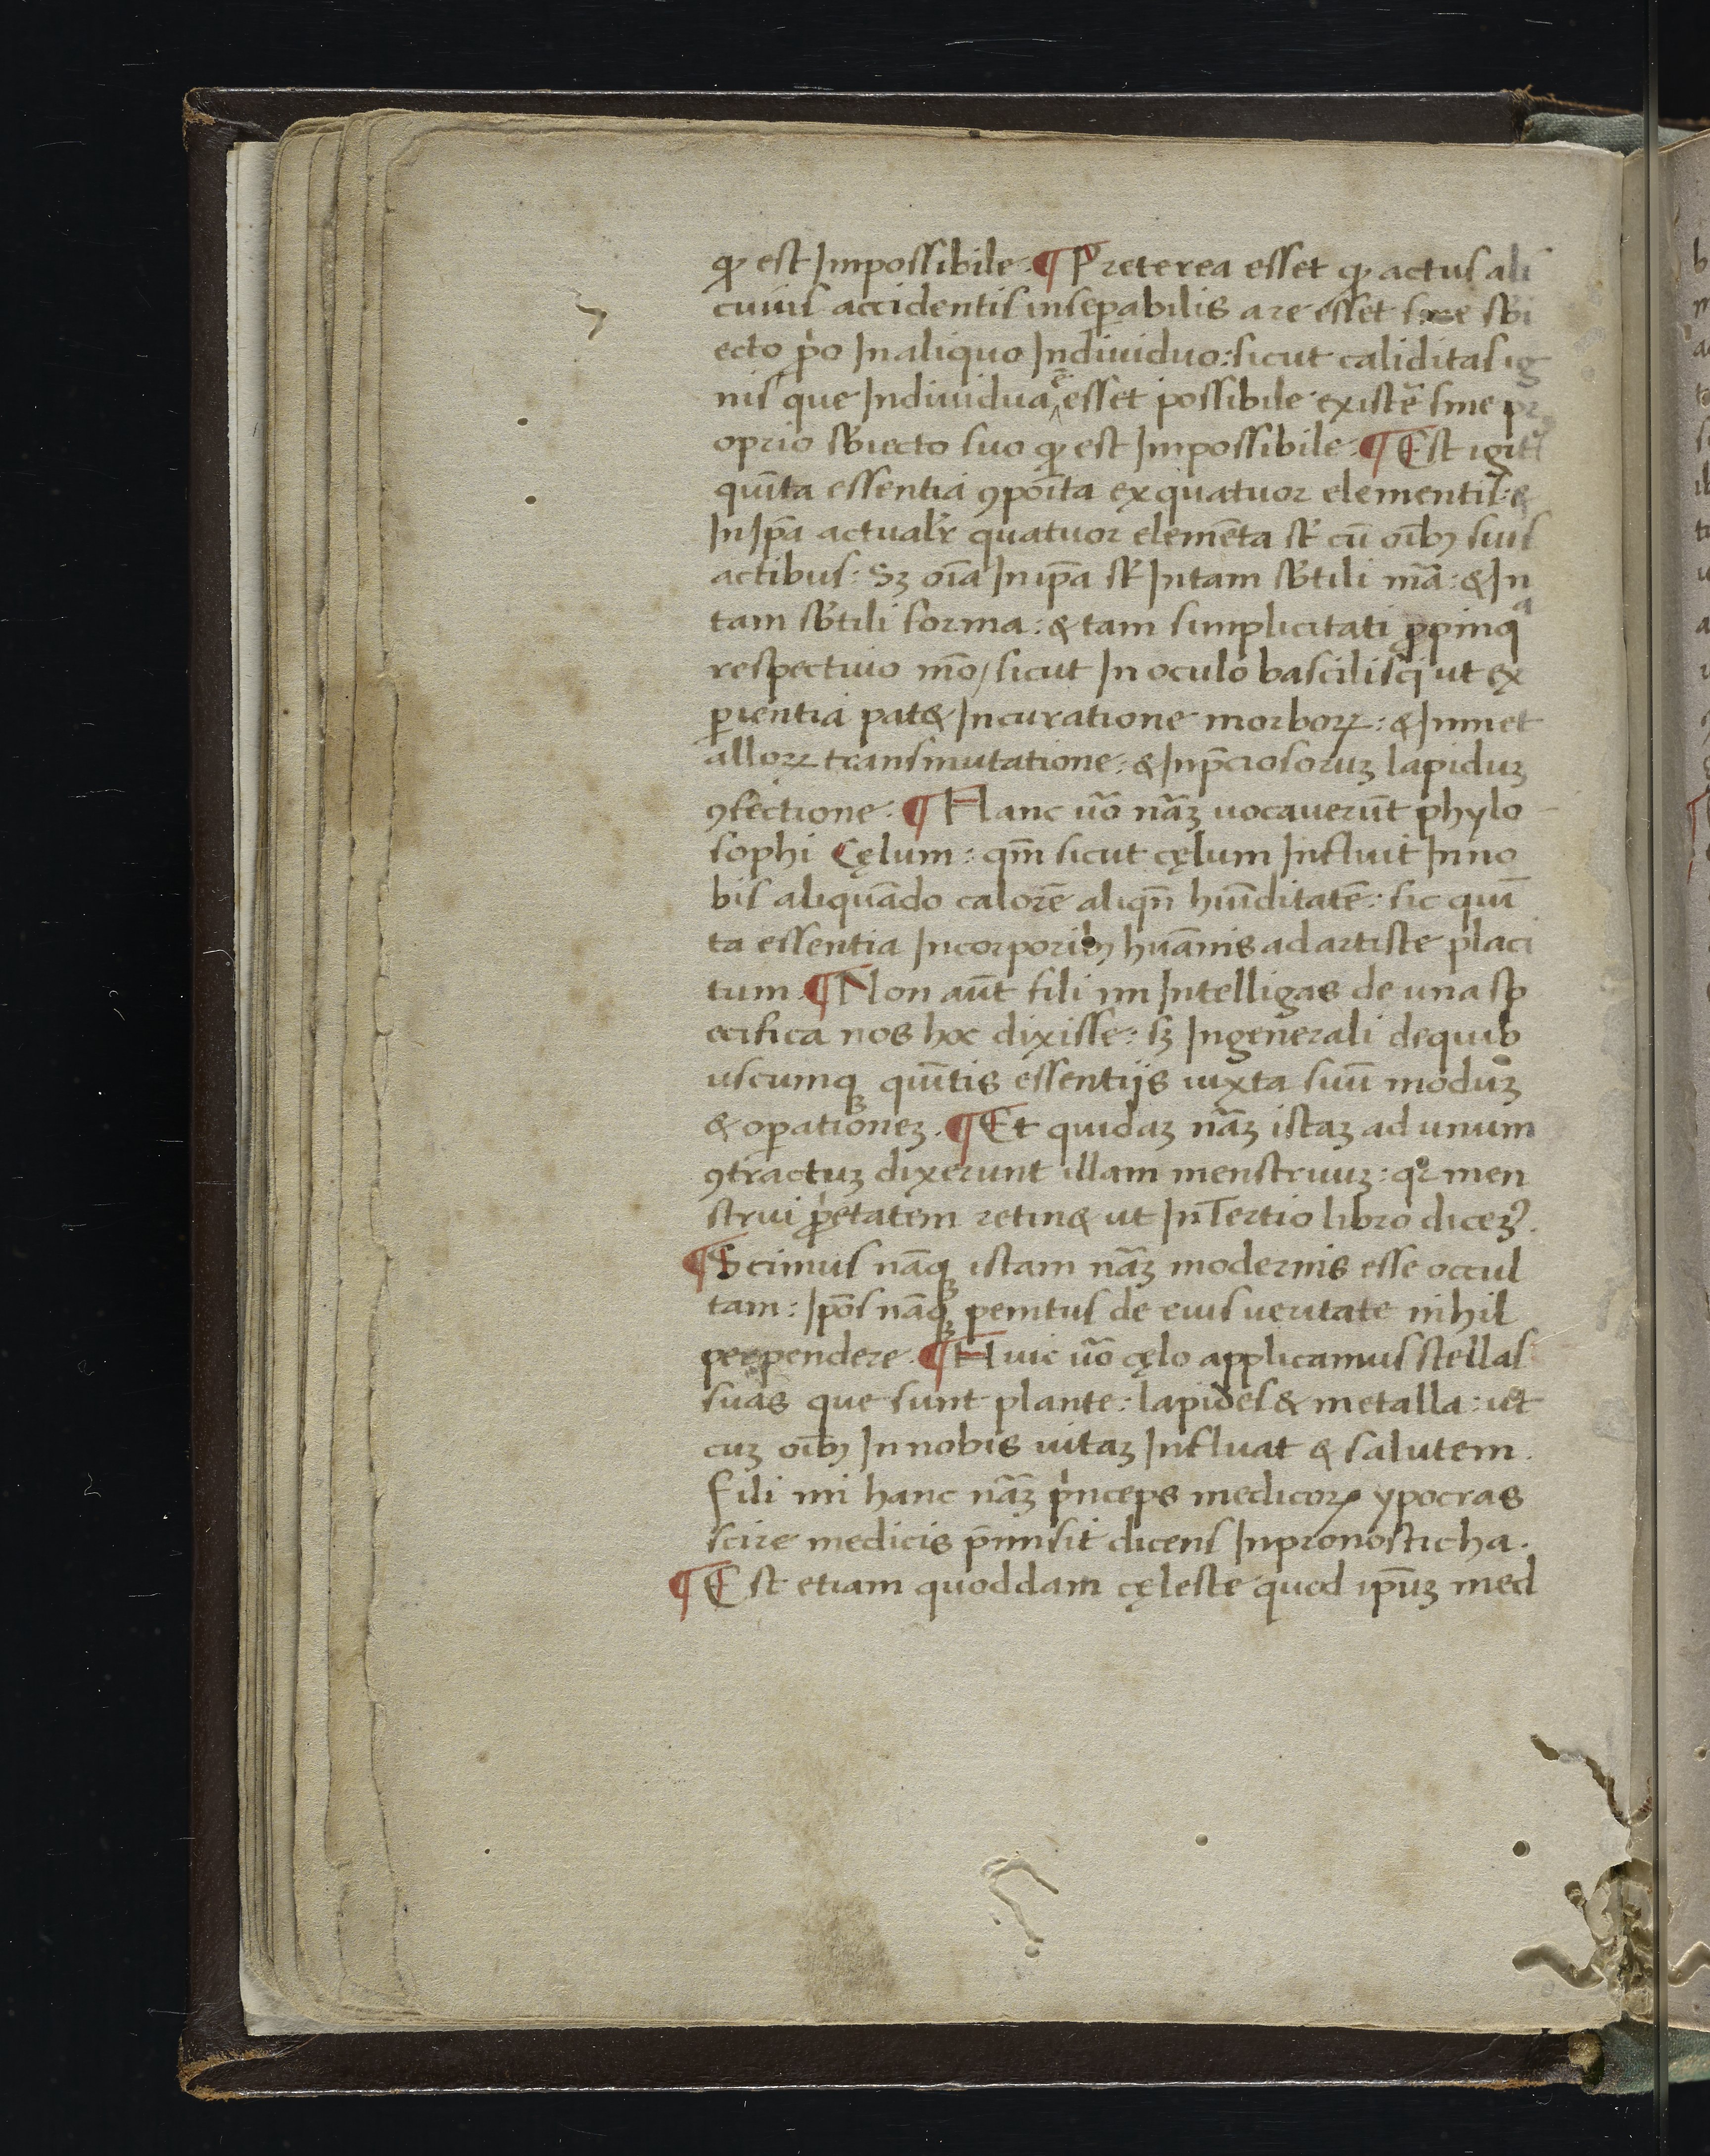 ꝙ est Impossibile. ¶ Preterea esset ꝙ actus ali
cuius accidentis inseꝑabilis a re esset sine sb̄i
ecto ꝓ̍o In aliquo Indiuiduo: sicut caliditas ig
nis que Indiuidua ē esset possibile existe᷒ sine pr
oprio sb̄iecto suo ꝙ est Impossibile. ¶ Est igit᷑
quīta essentia ꝯpoīta ex quatuor elementis: &
In Ip̄a actualr̄ quatuor elemēta st̄ cū oīb⁊ suis
actibus: Sꝫ oīa In ip̄a st̄ In tam sb̄tili mā: & In
tam sb̄tili forma: & tam simplicitati ꝓpinqͣ
respectiuo mō / sicut In oculo bascilisci ut ex
ꝑientia pat& In curatione morboꝝ: & In met
alloꝝ transmutatione: & In p̄ciosoruꝫ lapiduꝫ
ꝯfectione. ¶ Hanc uō nāꝫ uocauerūt phylo
sophi Cęlum: qm̄ sicut cęlum Influit In no
bis aliquādo calorē aliqn̄ hūīditatē: sic quī
ta essentia In corporib⁊ huānis ad artiste placi
tum. ¶ Non aūt fili mi Intelligas de una sp
ecifica nos hoc dixisse: sꝫ In generali de quib
uscumqꝫ quītis essentijs iuxta suū moduꝫ
& oꝑationeꝫ. ¶ Et quidaꝫ nāꝫ istaꝫ ad unum
ꝯtractuꝫ dixerunt illam menstruuꝫ: qꝛ men
strui ꝓ̍etatem retin& ut In Tertio libro diceꝫ᷒.
¶ Scimus nāqꝫ istam nāꝫ modernis esse occul
tam: Ip̄os nāqꝫ penitus de eius ueritate nihil
perpendere. ¶ Huic uō cęlo applicamus stellas
suas que sunt plante: lapides & metalla: ut
cuꝫ oīb⁊ In nobis uitaꝫ Influat & salutem.
Fili mi hanc nāꝫ p̍nceps medicoꝝ ypocras
scire medicis p̄misit dicens In pronosticha.
¶ Est etiam quoddam cęleste quod ip̄uꝫ med